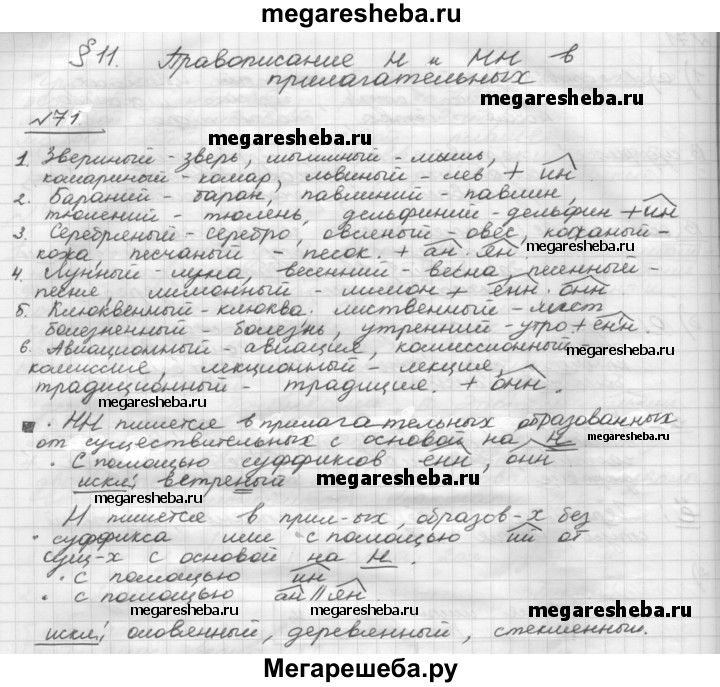 megaresheba.ru
§ 11. Правописание Н и НН в
прилагательных
megaresheba.ru
№71.
megaresheba.ru
1. Звериный - зверь, мышиный - мышь,
комариный - комар, львиный - лев + ин.
2. Бараний - баран, павлиний - павлин,
тюлений - тюлень, дельфиний - дельфин + ин
3. Серебряный - серебро, овсяный - овес, кожаный -
кожа, песчаный - песок. + ан. ян.
megaresheba.ru
4. Лунный - луна, весенний - весна, песенный -
песня, лимонный - лимон + енн. онн
5. Клюквенный - клюква. лиственный - лист
болезненный - болезнь, утренний - утро + енн.
6. Авиационный - авиация, комиссионный
megaresheba.ru
комиссия, лекционный - лекция,
традиционный - традиция. + онн.
megaresheba.ru
· НН пишется в прилагательных образованных
от существительных с основой на Н
megaresheba.ru
· С помощью суффиксов енн, онн
искл; ветреный
megaresheba.ru
Н пишется в прил-ых, образов-х без
· суффикса или с помощью ий от
сущ-х с основой на Н.
· с помощью ин
· с помощью ан // ян.
megaresheba.ru
megaresheba.ru
искл; оловянный, деревянный, стеклянный.
Мегарешеба.ру